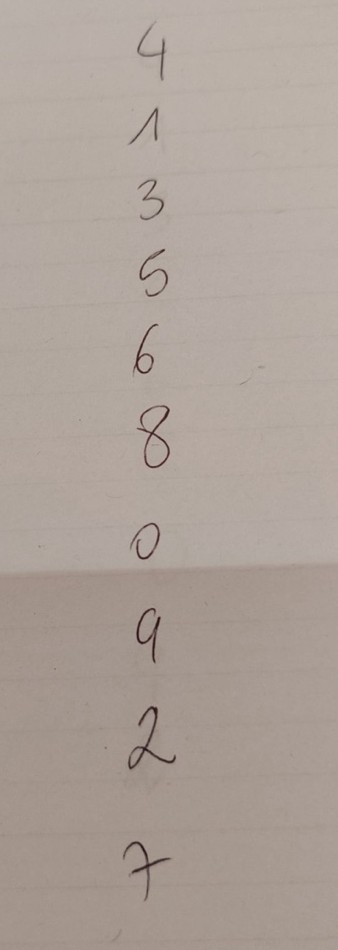 4
1
3
5
6
8
0
9
2
7